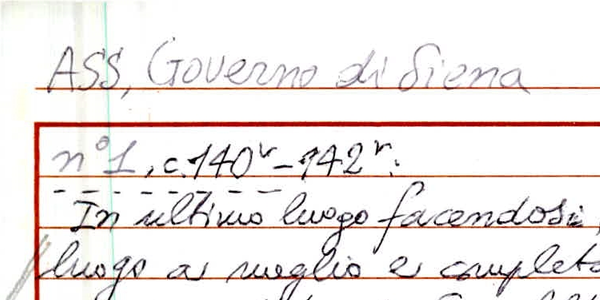 ASS, Governo di Siena
n° 1, c. 140v - 142r:
In ultimo luogo facendosi,
luogo a meglio e complet